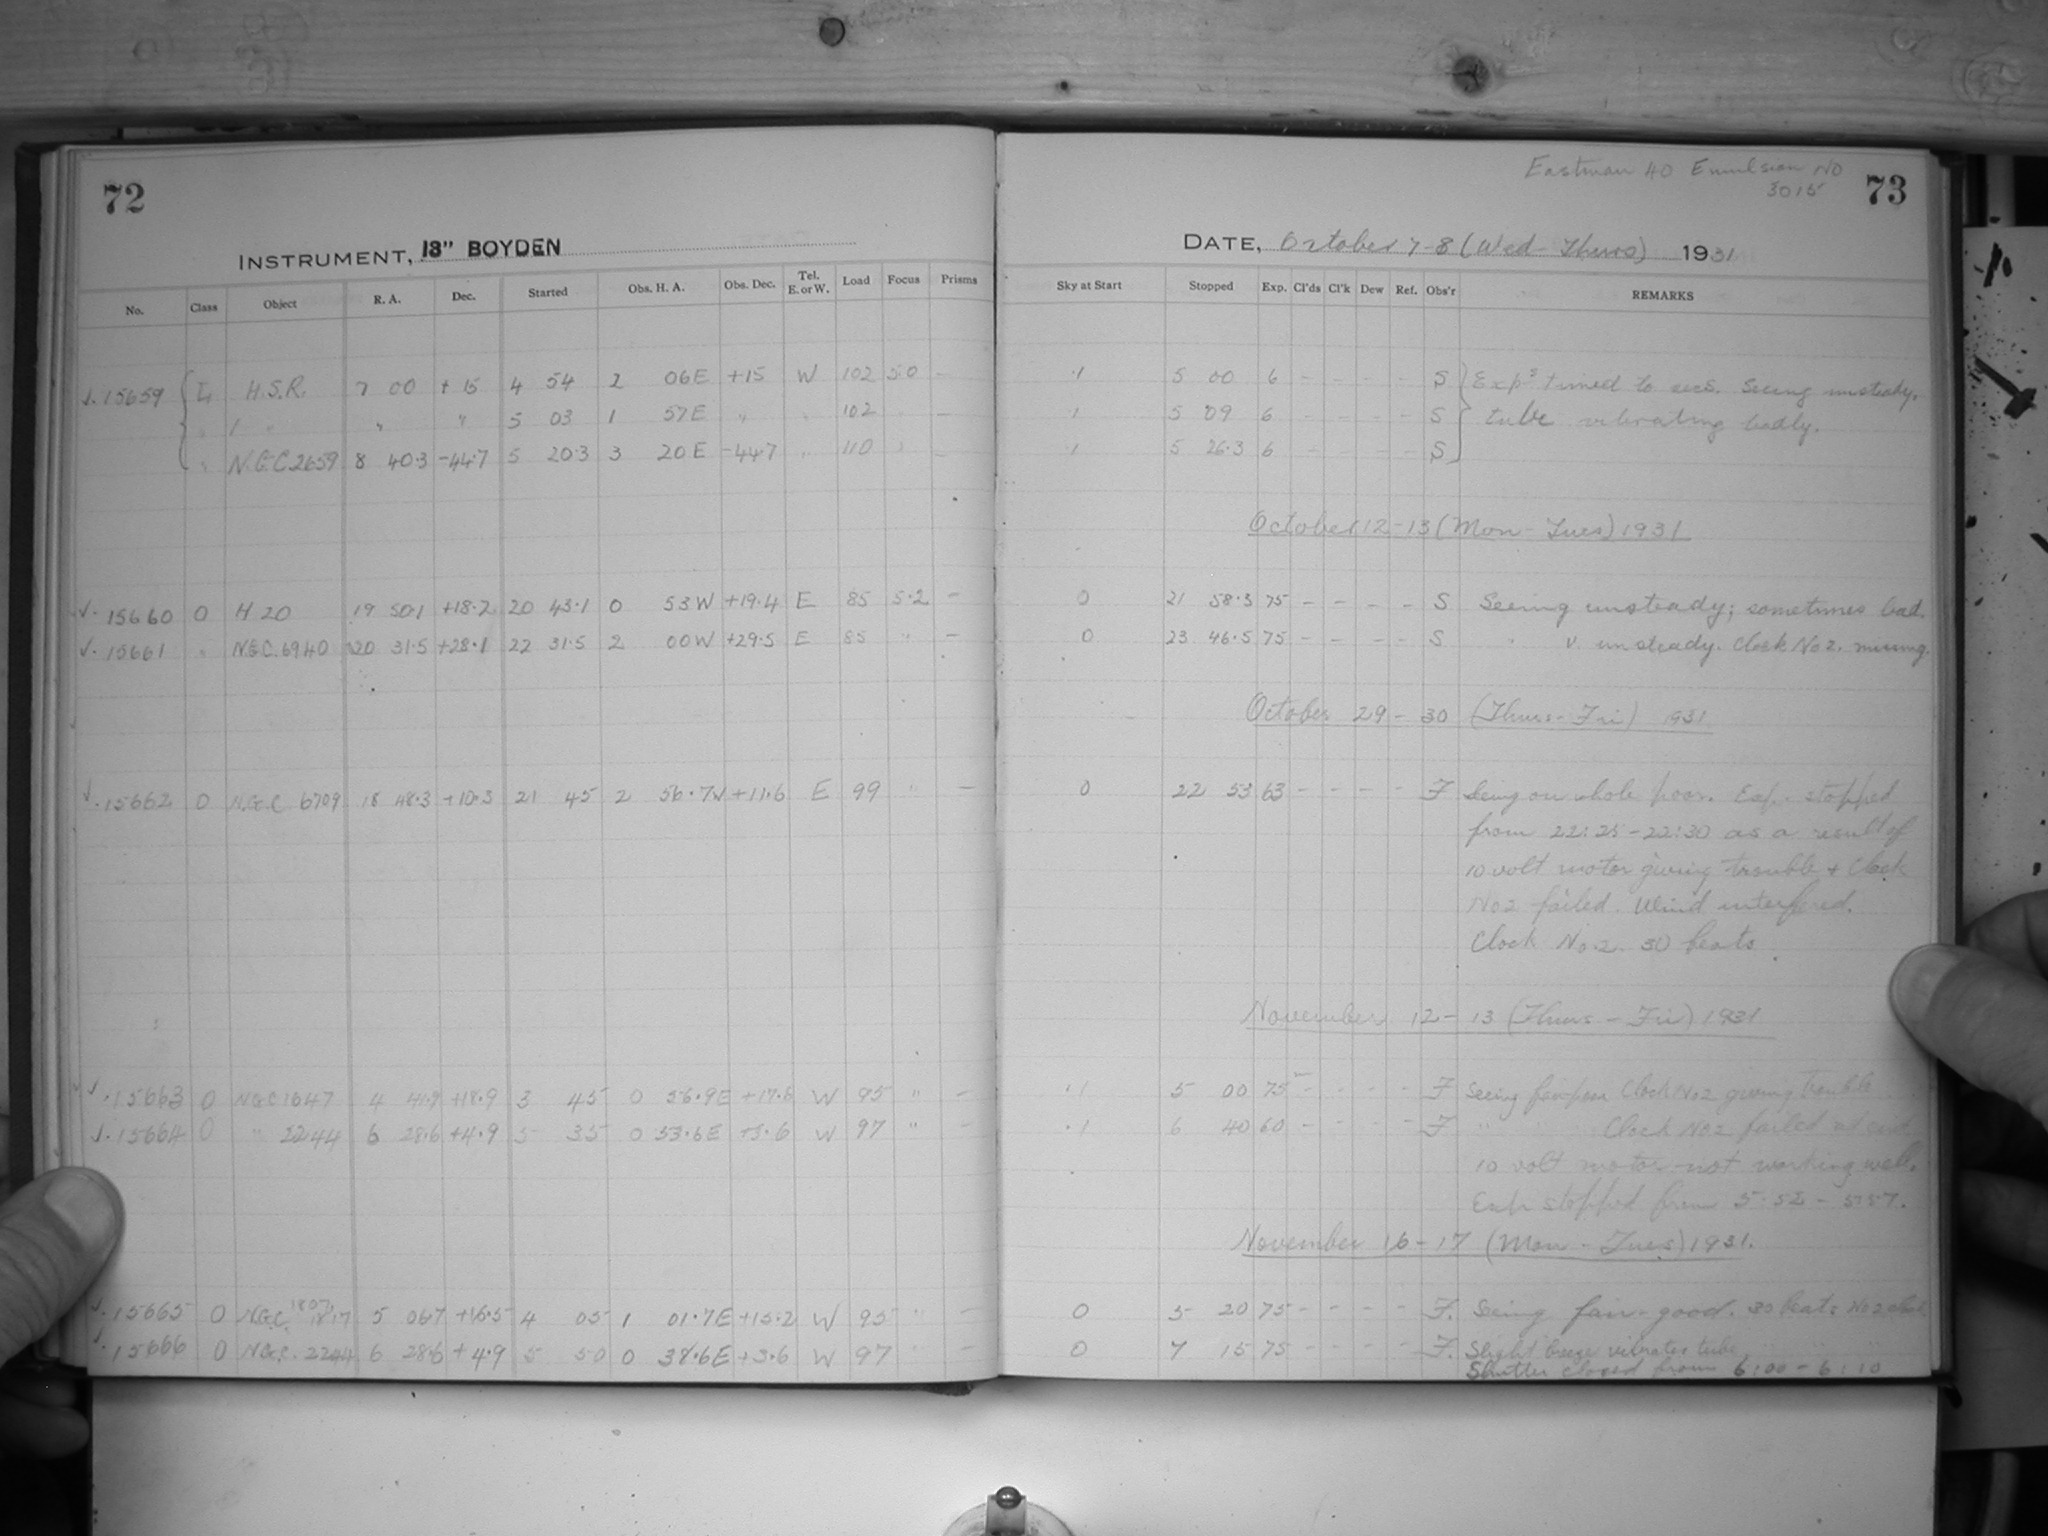 72
INSTRUMENT, 13" BOYDEN
No. Class Object R. A. Dec. Started Obs. H. A. Obs. Dec. Tel. E. or W. Load Focus Prisms
√.15659 H.S.R. 7 00 +15 4 54 2 06E +15 W 102 5.0 -
" " " " 5 03 1 57E " " 102 " -
" N.G.C 2659 8 40.3 -44.7 5 20.3 3 20E -44.7 " 110 " -
√.15660 O H 20 19 50.1 +18.2 20 43.1 0 53W +19.4 E 85 5.2 -
√.15661 " N.G.C. 6940 20 31.5 +28.1 22 31.5 2 00W +29.5 E 85 " -
√.15662 O N.G.C 6709 18 48.3 +10.3 21 45 2 56.7W +11.6 E 99 " -
√.15663 O NGC 1647 4 41.9 +18.9 3 45 0 56.9E +17.6 W 95 " -
√.15664 O " 2244 6 28.6 +4.9 5 35 0 53.6E +3.6 W 97 " -
√.15665 O N.G.C. 1807, 1817 5 06.7 +16.5 4 05 1 01.7E +15.2 W 95 " -
√.15666 O N.G.C. 2244 6 28.6 +4.9 5 50 0 38.6E +3.6 W 97 " -
Eastman 40 Emulsion No
3015
73
DATE, October 7-8 (Wed-Thurs) 1931
Sky at Start Stopped Exp. Cl'ds Cl'k Dew Ref. Obs'r REMARKS
.1 5 00 6 - - - - S Exps timed to secs. Seeing unsteady,
.1 5 09 6 - - - - S tube vibrating badly.
.1 5 26.3 6 - - - - S
October 12-13 (Mon-Tues) 1931
0 21 58.3 75 - - - - S Seeing unsteady; sometimes bad.
0 23 46.5 75 - - - - S " v. unsteady. Clock No 2. missing.
October 29-30 (Thurs-Fri) 1931
0 22 53 63 - - - - F Seeing on whole poor. Exp. stopped
from 22:25-22:30 as a result of
10 volt motor giving trouble + Clock
No 2 failed. Wind interfered.
Clock No. 2. 30 beats.
November 12-13 (Thurs-Fri) 1931
.1 5 00 75 - - - - F Seeing fair-poor Clock No 2 giving trouble
.1 6 40 60 - - - - F " " Clock No 2 failed at end
10 volt motor not working well.
Exp stopped from 5:52 - 5:57.
November 16-17 (Mon-Tues) 1931.
0 5 20 75 - - - - F. Seeing fair-good. 30 beats No 2 clock
0 7 15 75 - - - - F. Slight breeze vibrates tube
Shutter closed from 6:00 - 6:10